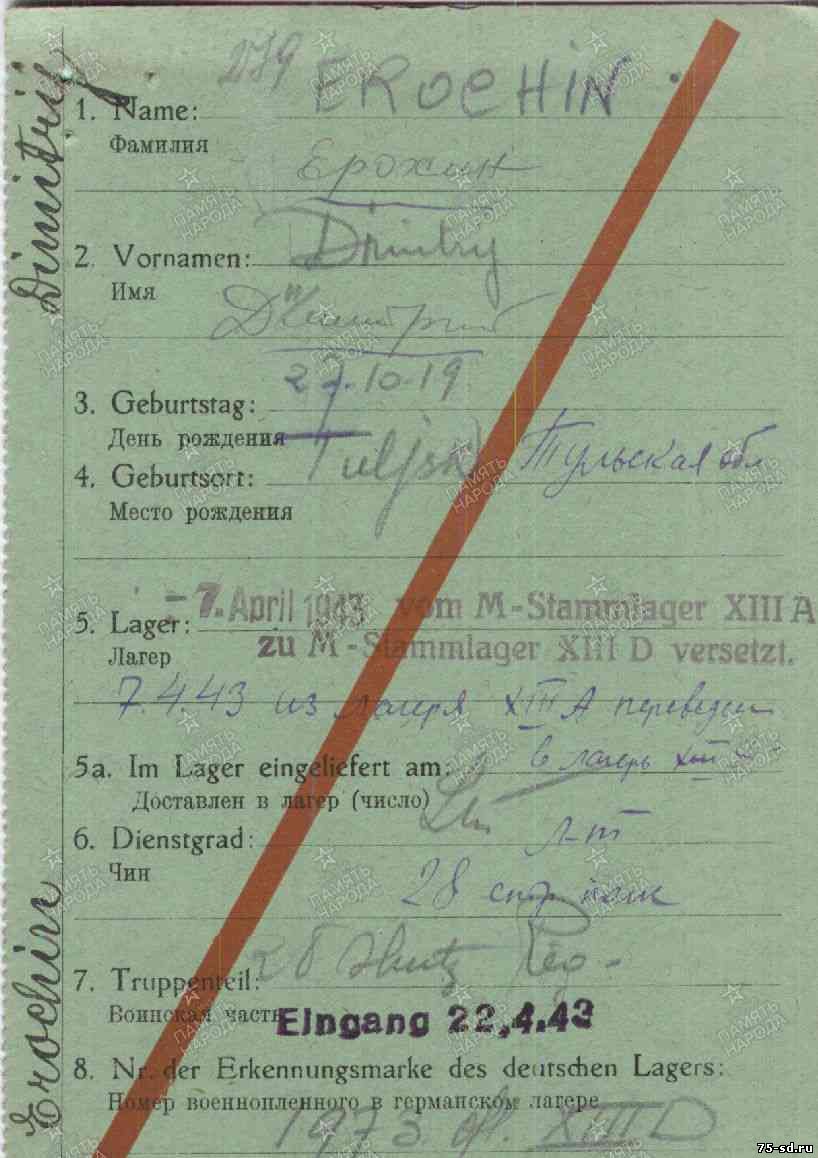 279 EROCHIN
1. Name:
Фамилия
Ерохин
Dmitry
2. Vornamen:
Имя
Дмитрий
27.10.19
3. Geburtstag:
День рождения
Tuljsk Тульская обл
4. Geburtsort:
Место рождения
-7. April 1943 vom M-Stammlager XIII A
5. Lager:
zu M-Stammlager XIII D versetzt.
Лагер
7.4.43 из лагеря XIII A переведен
в лагерь XIII
5a. Im Lager eingeliefert am:
Доставлен в лагер (число)
Ltn
6. Dienstgrad: л-т
Чин
28 стр полк
28 Reg.
7. Truppenteil:
Воинская часть
Eingang 22.4.43
8. Nr. der Erkennungsmarke des deutschen Lagers:
Номер военнопленного в германском лагере
1973 of. XIII D
Erochin Dimitrij
ПАМЯТЬ НАРОДА
75-sd.ru